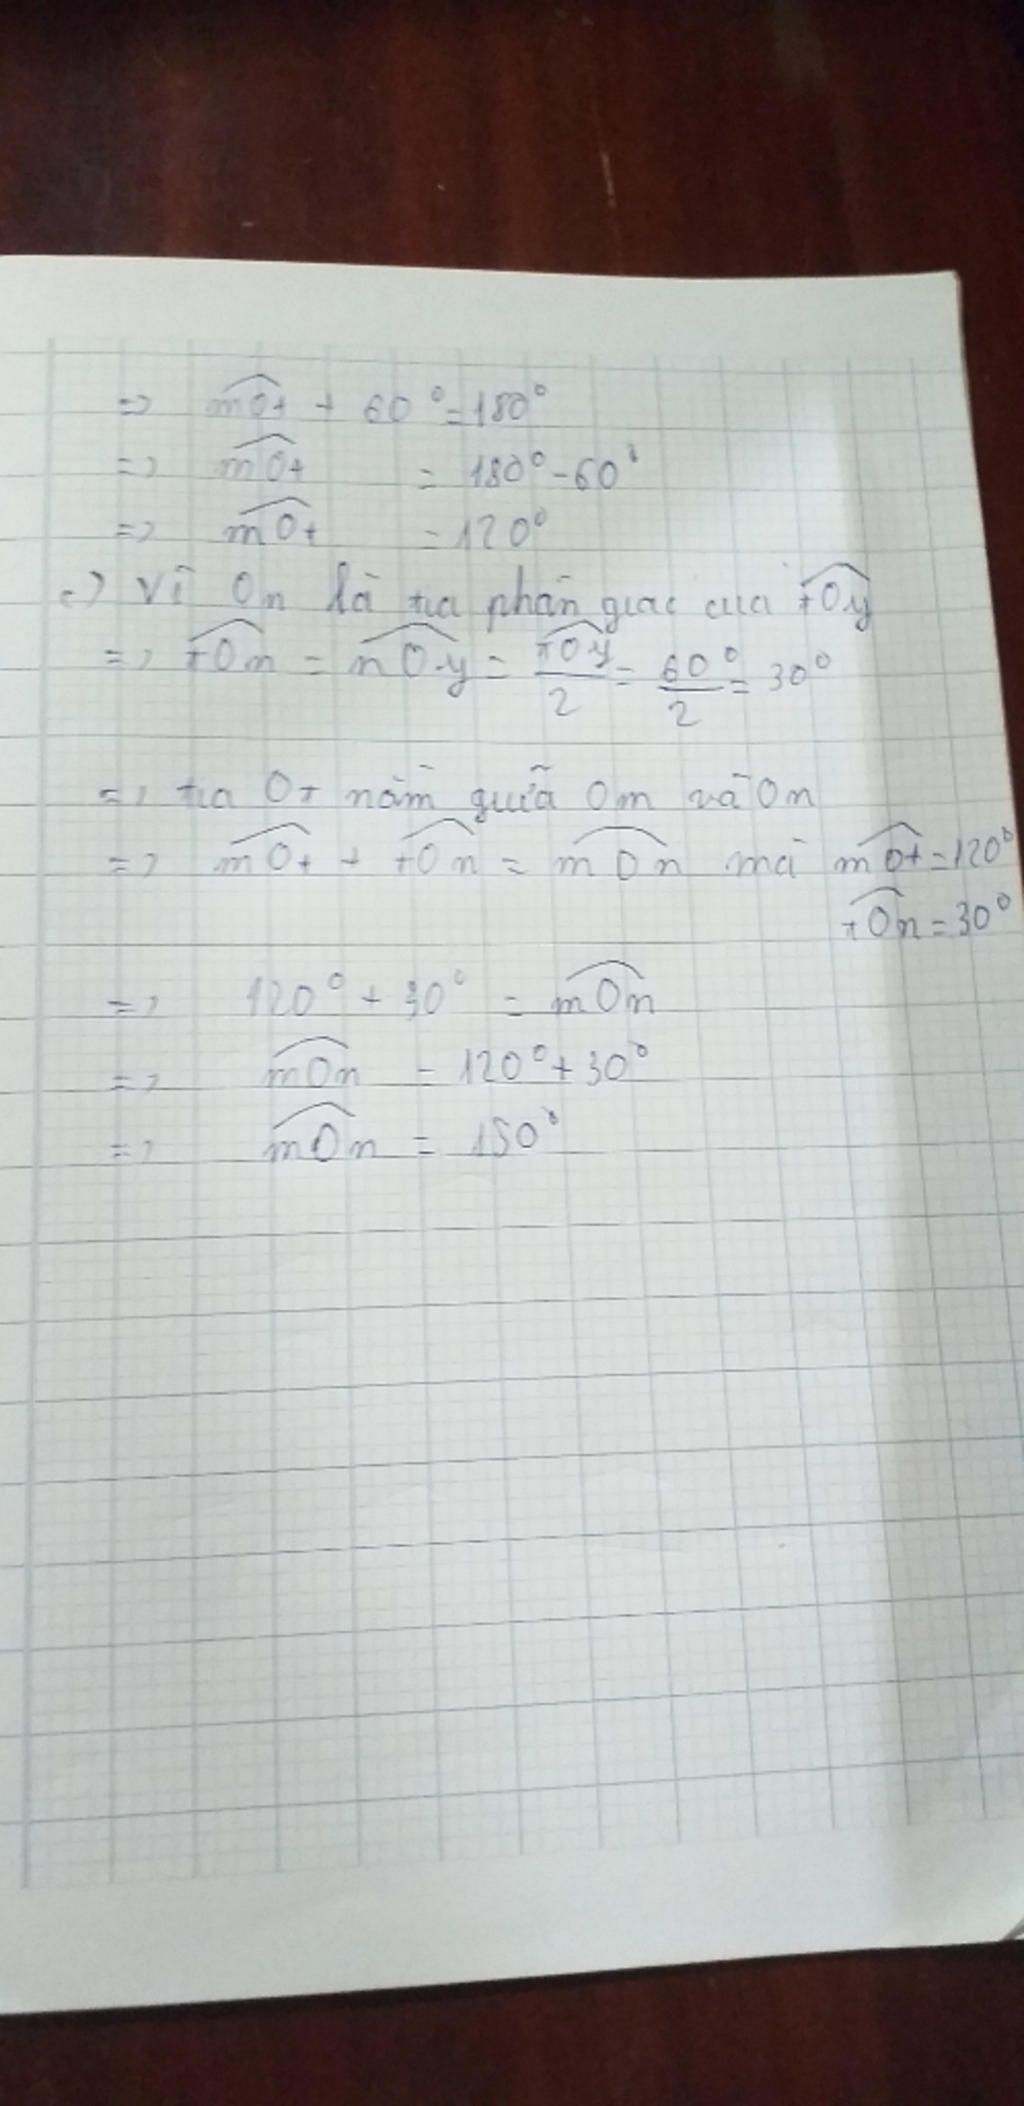 => mOt + 60° = 180°
=> mOt = 180° - 60°
=> mOt = 120°
c) Vì On là tia phân giác của tOy
=> tOn = nOy = tOy/2 = 60°/2 = 30°
=> tia Ot nằm giữa Om và On
=> mOt + tOn = mOn mà mOt = 120°
tOn = 30°
=> 120° + 30° = mOn
=> mOn = 120° + 30°
=> mOn = 150°